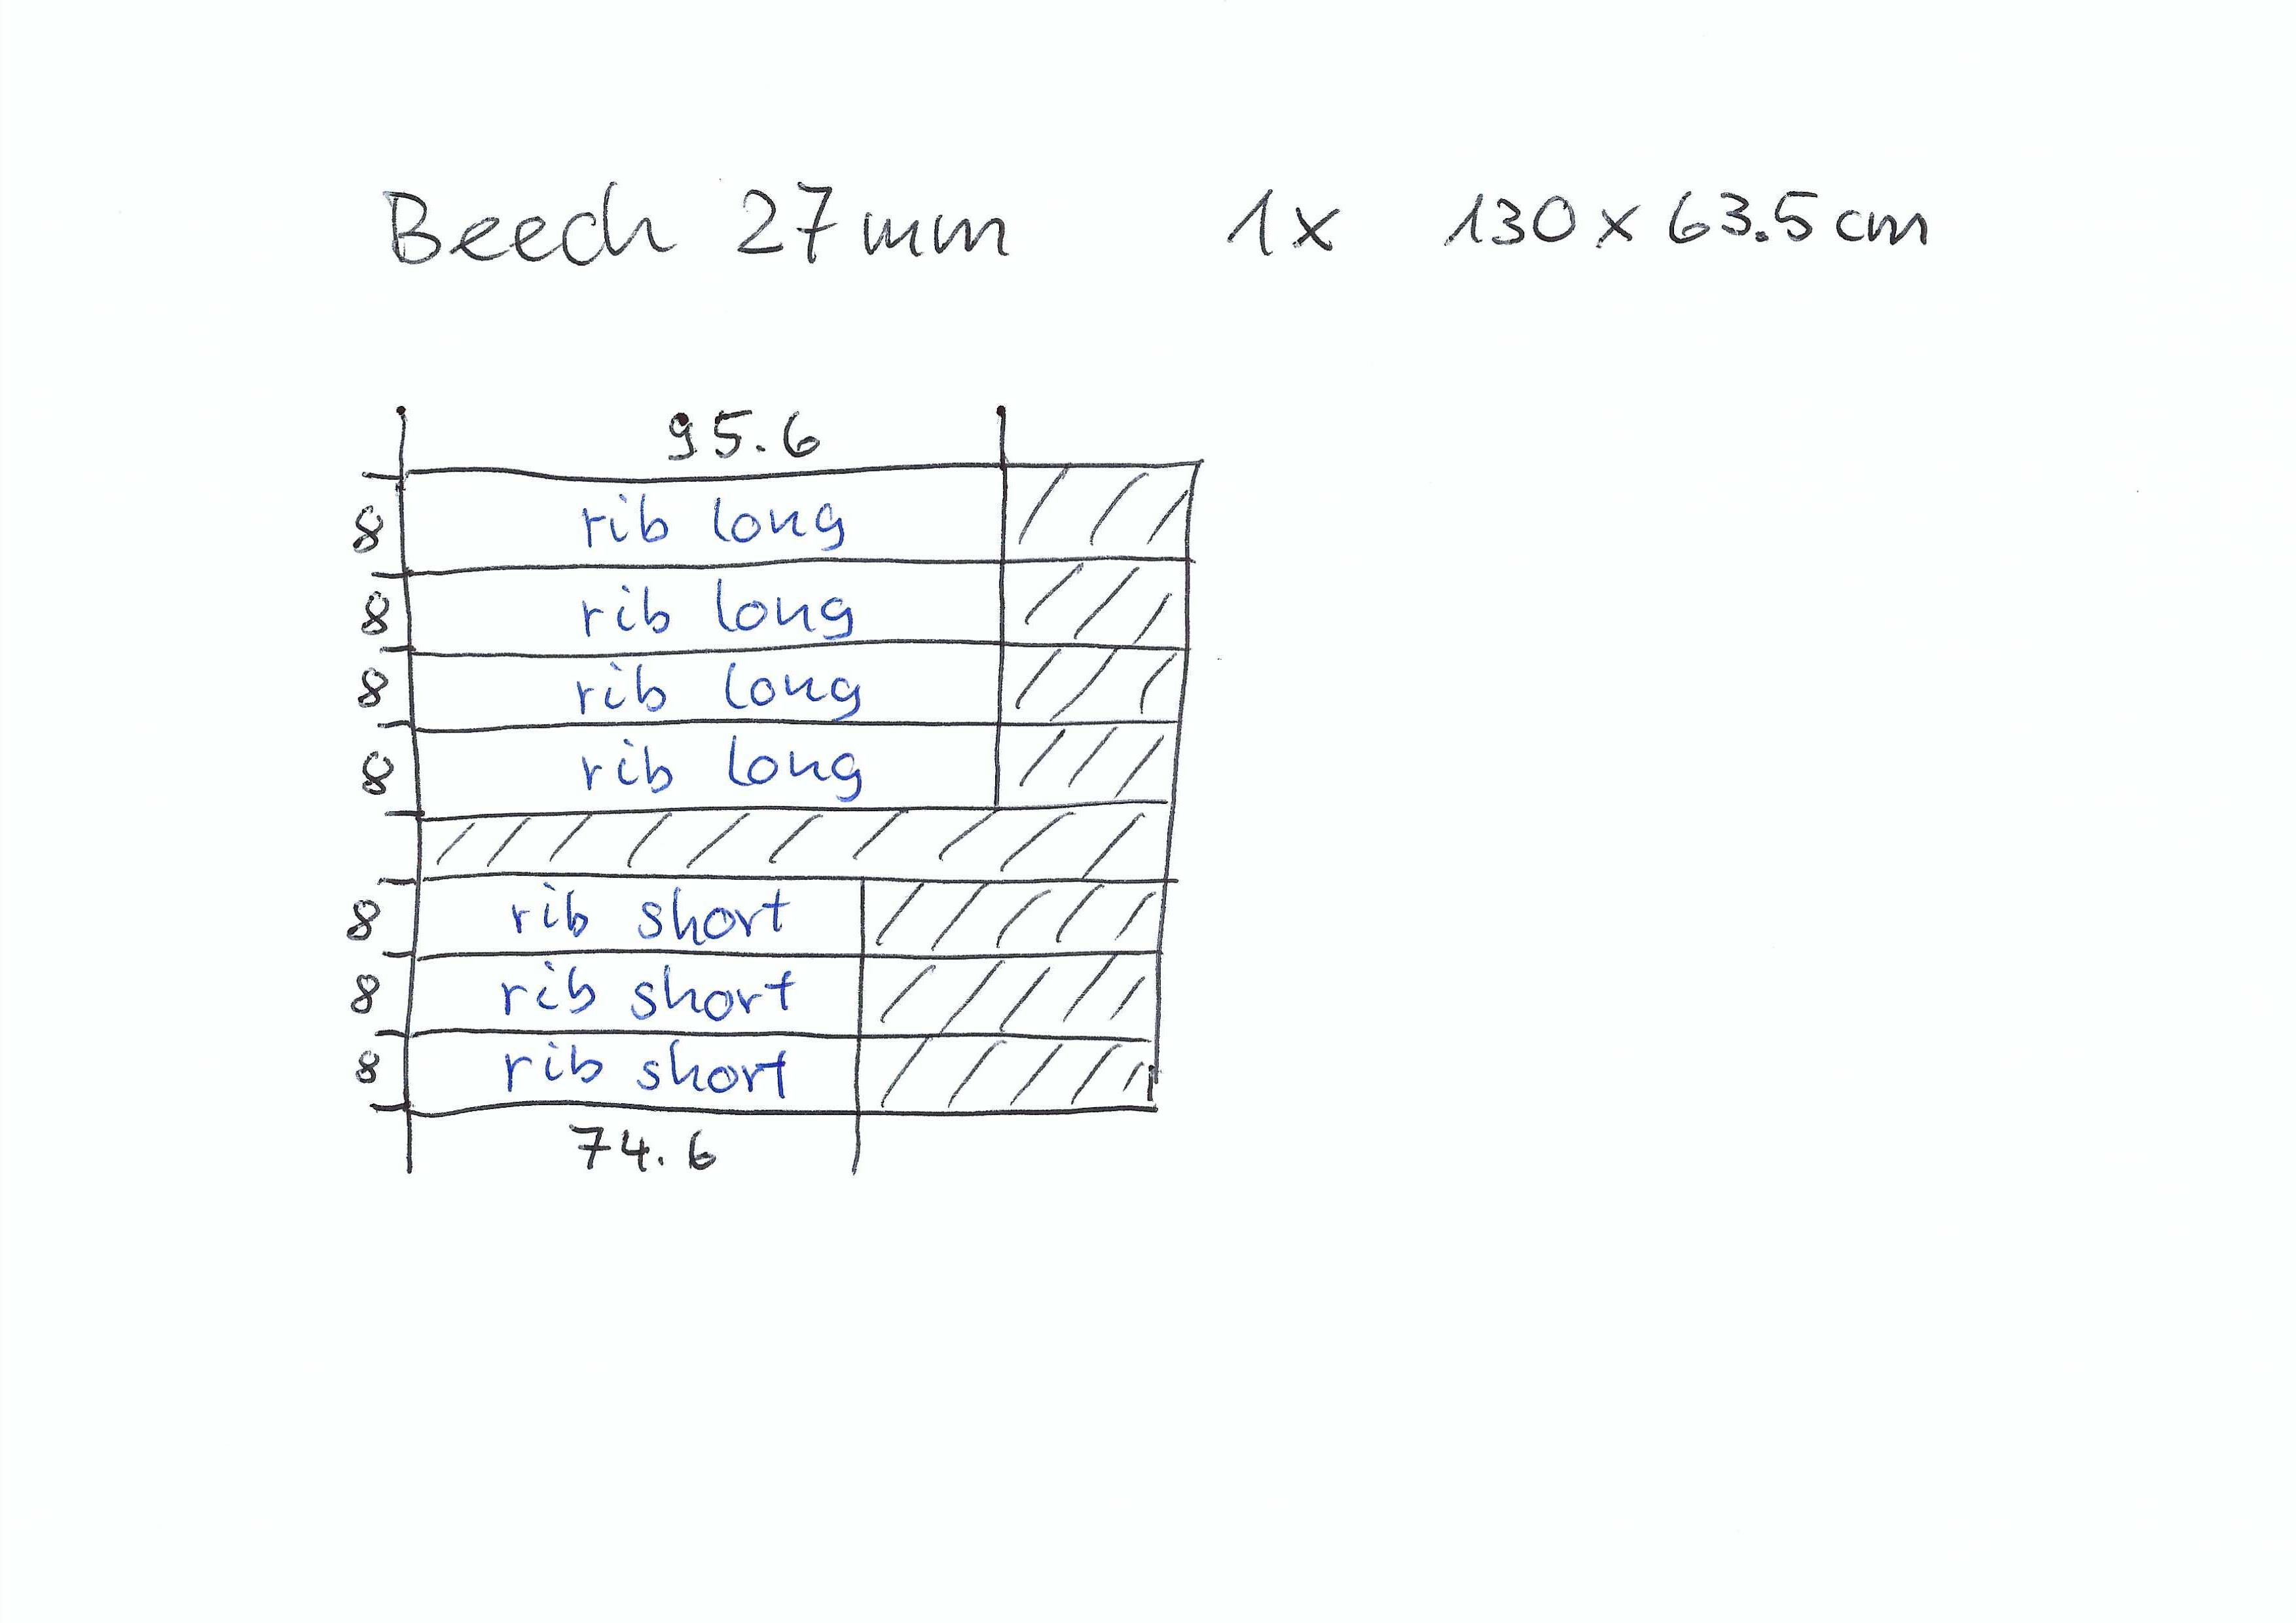 Beech 27mm 1x 130 x 63.5 cm
95.6
8 rib long
8 rib long
8 rib long
8 rib long
8 rib short
8 rib short
8 rib short
74.6